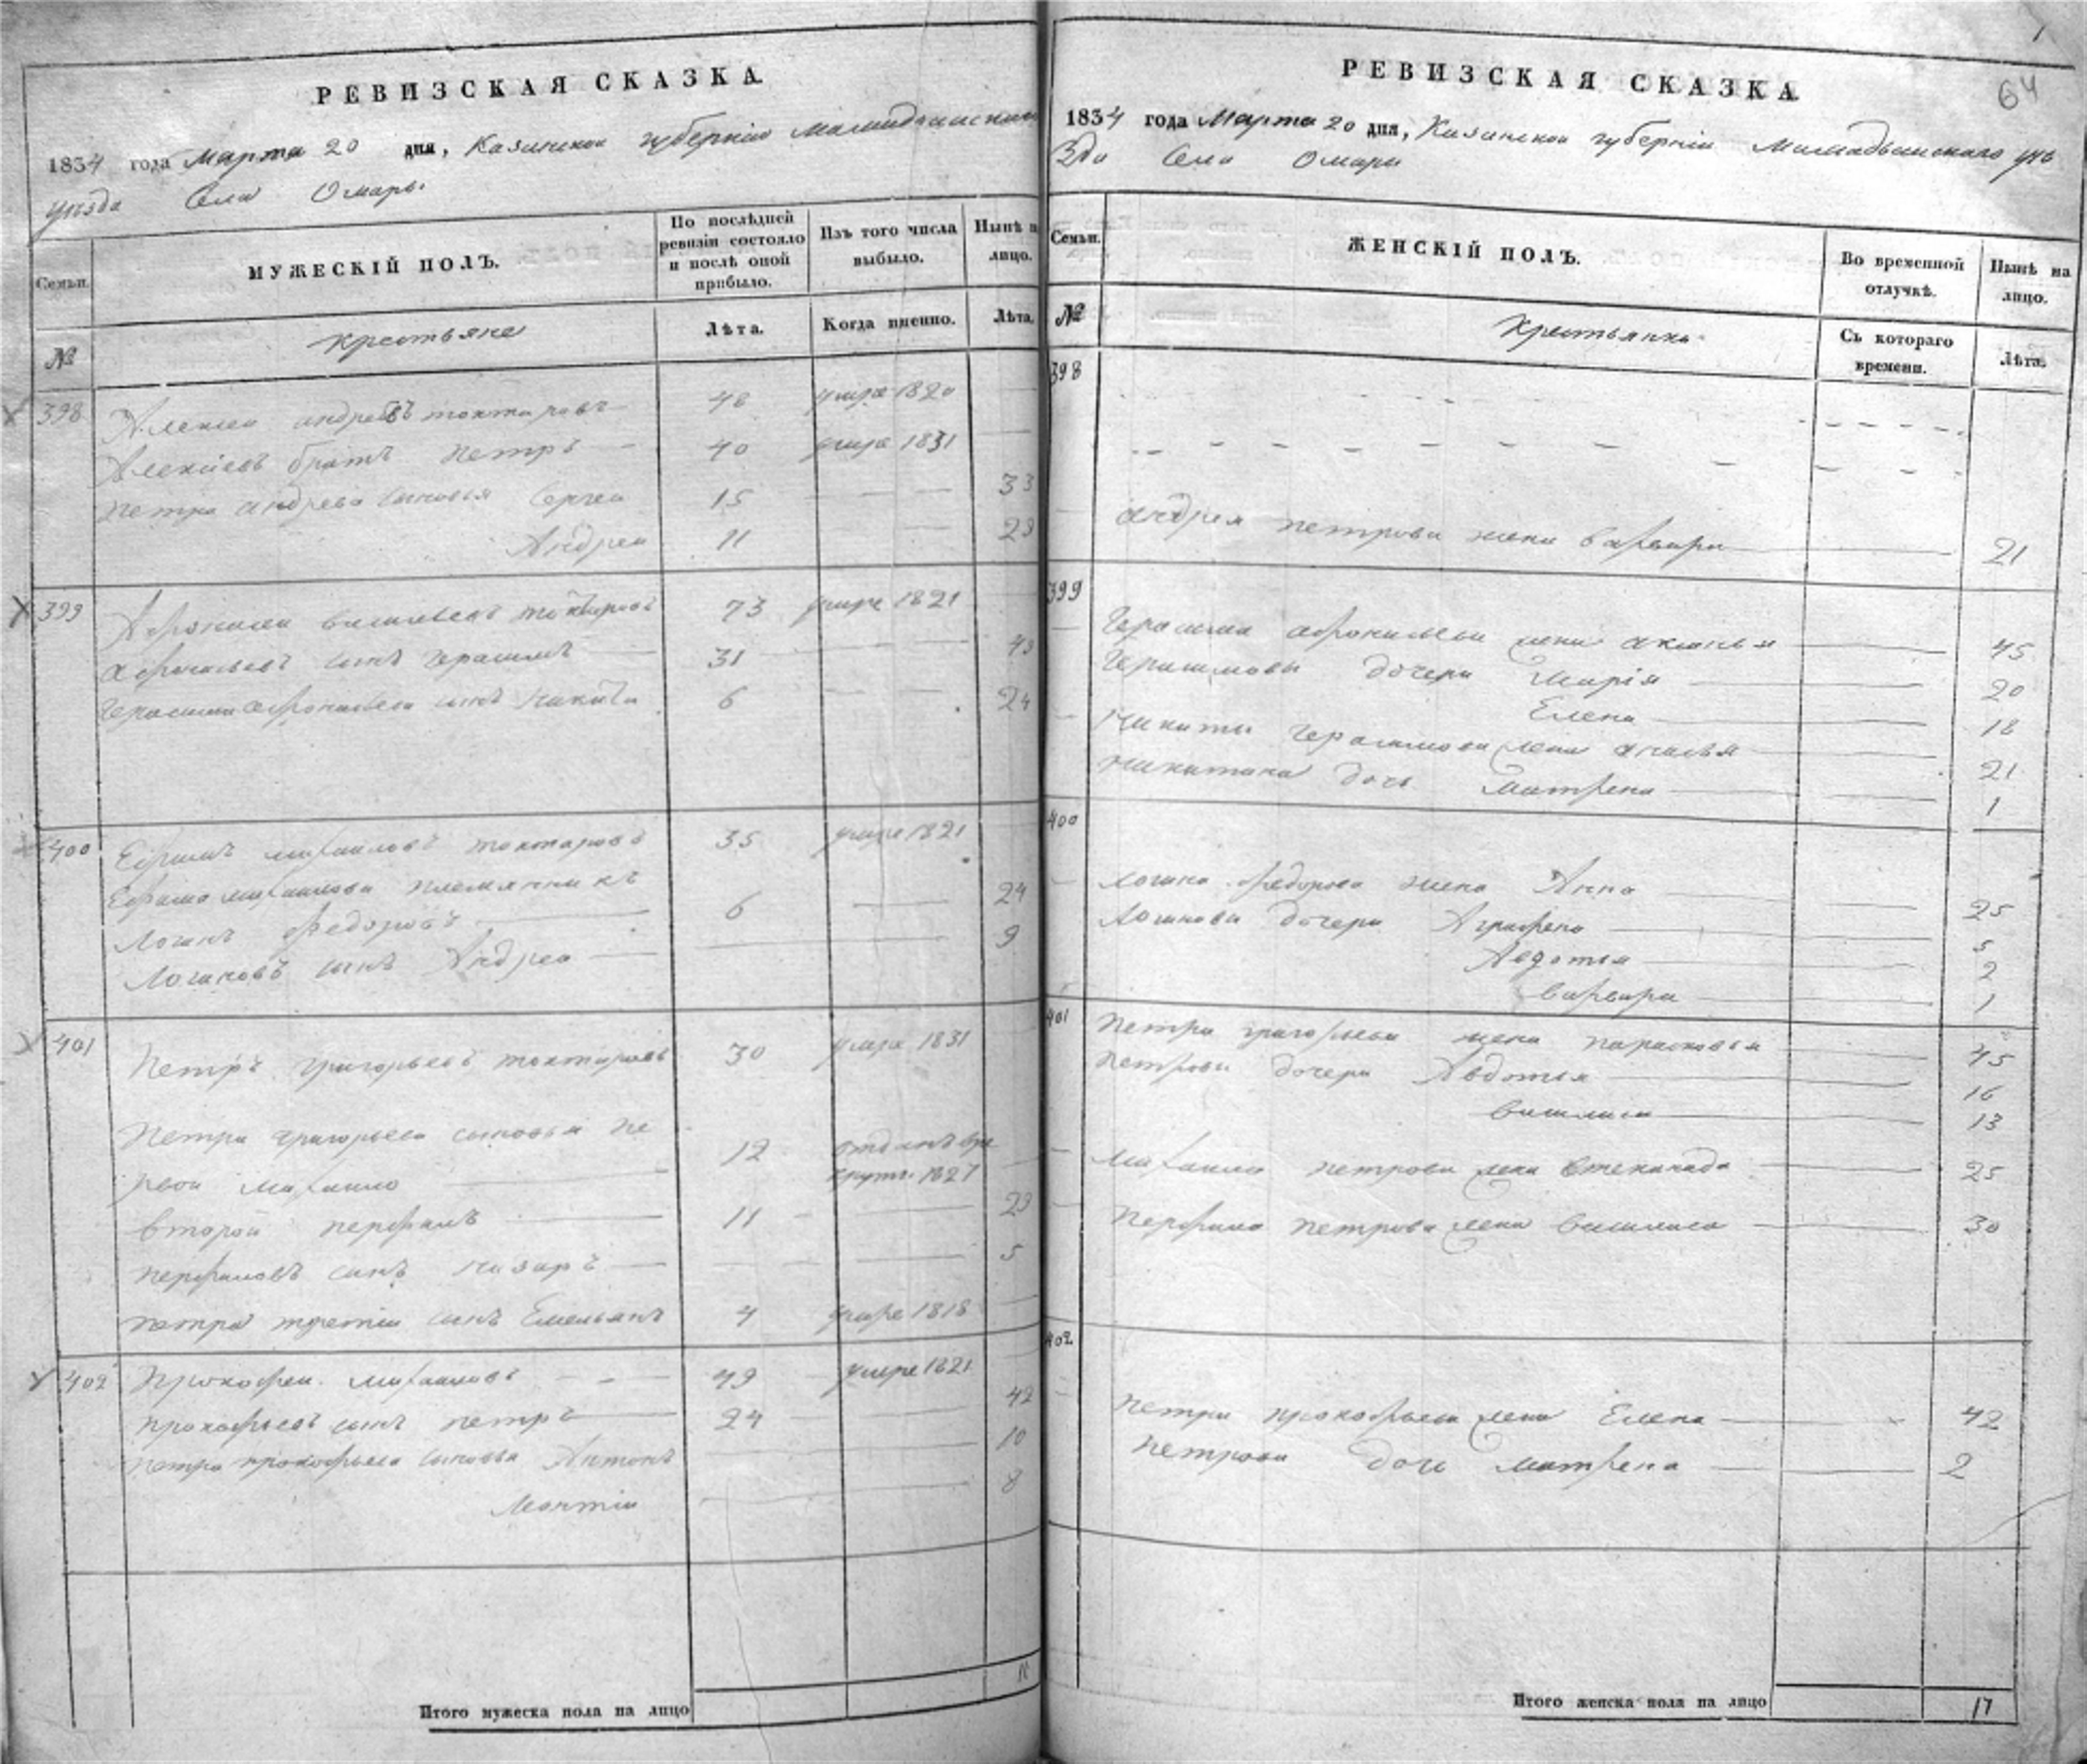 РЕВИЗСКАЯ СКАЗКА.
1834 года Марта 20 дня, Казанской губерніи Мамадышскаго
уѣзда Села Омары
Семьи.
МУЖЕСКІЙ ПОЛЪ.
По послѣдней ревизіи состояло и послѣ оной прибыло.
Изъ того числа выбыло.
Нынѣ на лицо.
№
крестьяне
Лѣта.
Когда именно.
Лѣта.
398 Алексей андреевъ токтаровъ 48 умре 1820
Алексеевъ братъ Петръ 40 умре 1831
Петра андреева сыновья Сергеи 15 33
Андреи 11 29
399 Афонасеи васильевъ 73 умре 1821
афонасьевъ сынъ Герасимъ 31 49
Герасима афонасьева сынъ Никита 6 24
400 Ефимъ михаиловъ токтаровъ 35 умре 1821
Ефима михаилова племянникъ
Логинъ Федоровъ 6 24
Логиновъ сынъ Андреи 9
401 Петръ григорьевъ токтаровъ 30 умре 1831
Петра григорьева сыновья пе
рвои михаило 12 отданъ вре
круты 1827
второй перфилъ 11 29
перфиловъ сынъ Назаръ 5
петра третіи сынъ Емельянъ 4 умре 1818
402 Прокофеи михаиловъ 49 умре 1821
прокофьевъ сынъ петръ 24 42
петра прокофьева сыновья Антонъ 10
8
Итого мужеска пола на лицо
РЕВИЗСКАЯ СКАЗКА.
64
1834 года Марта 20 дня, Казанской губерніи Мамадышскаго уѣ
зда Села Омары
Семьи.
ЖЕНСКІЙ ПОЛЪ.
Во временной отлучкѣ.
Нынѣ на лицо.
№
Крестьянки
Съ котораго времени.
Лѣта.
398
андрея петрова жена варвара 21
399
Герасима афонасьева жена аксинья 45
Герасимовы дочери Марія 20
Елена 18
Никиты Герасимова жена 21
никитина дочь Матрена 1
400
логина федорова жена Анна 25
логиновы дочери Аграфена 5
Авдотья 2
варвара 1
401 Петра григорьева жена парасковья 45
петровы дочери Авдотья 16
василиса 13
михаила петрова жена степанида 25
перфила петрова жена василиса 30
402
петра прокофьева жена Елена 42
петрова дочь матрена 2
Итого женска пола на лицо 17